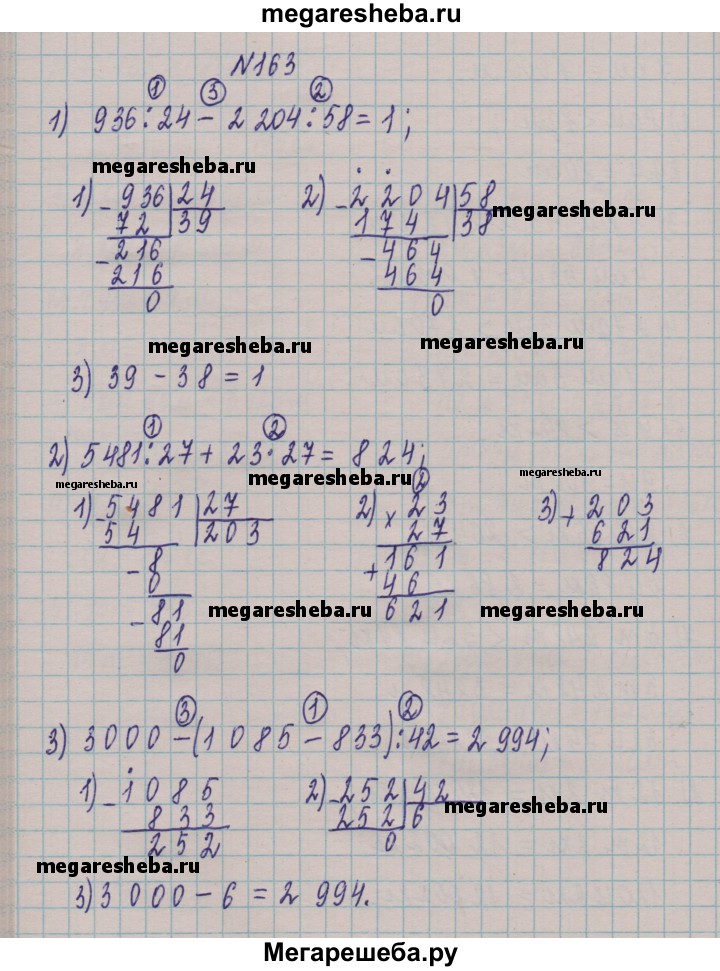 megaresheba.ru
№163
① ③ ②
1) 936:24 - 2 204:58 = 1;
megaresheba.ru
1) -936|24 2) -2 2 0 4|58
72 39 1 7 4 38
megaresheba.ru
-216 -464
216 464
0 0
megaresheba.ru megaresheba.ru
3) 39 - 38 = 1
① ②
2) 5481:27 + 23·27 = 824;
megaresheba.ru megaresheba.ru megaresheba.ru
②
1) -5481|27 2) × 23 3) + 203
54 203 27 621
-8 161 824
0 + 46
-81 621
megaresheba.ru megaresheba.ru
81
0
③ ① ②
3) 3000 - (1 085 - 833):42 = 2 994;
1) -1085 2) -252|42
833 252 6
megaresheba.ru
252 0
megaresheba.ru
3) 3 000 - 6 = 2 994.
Мегарешеба.ру